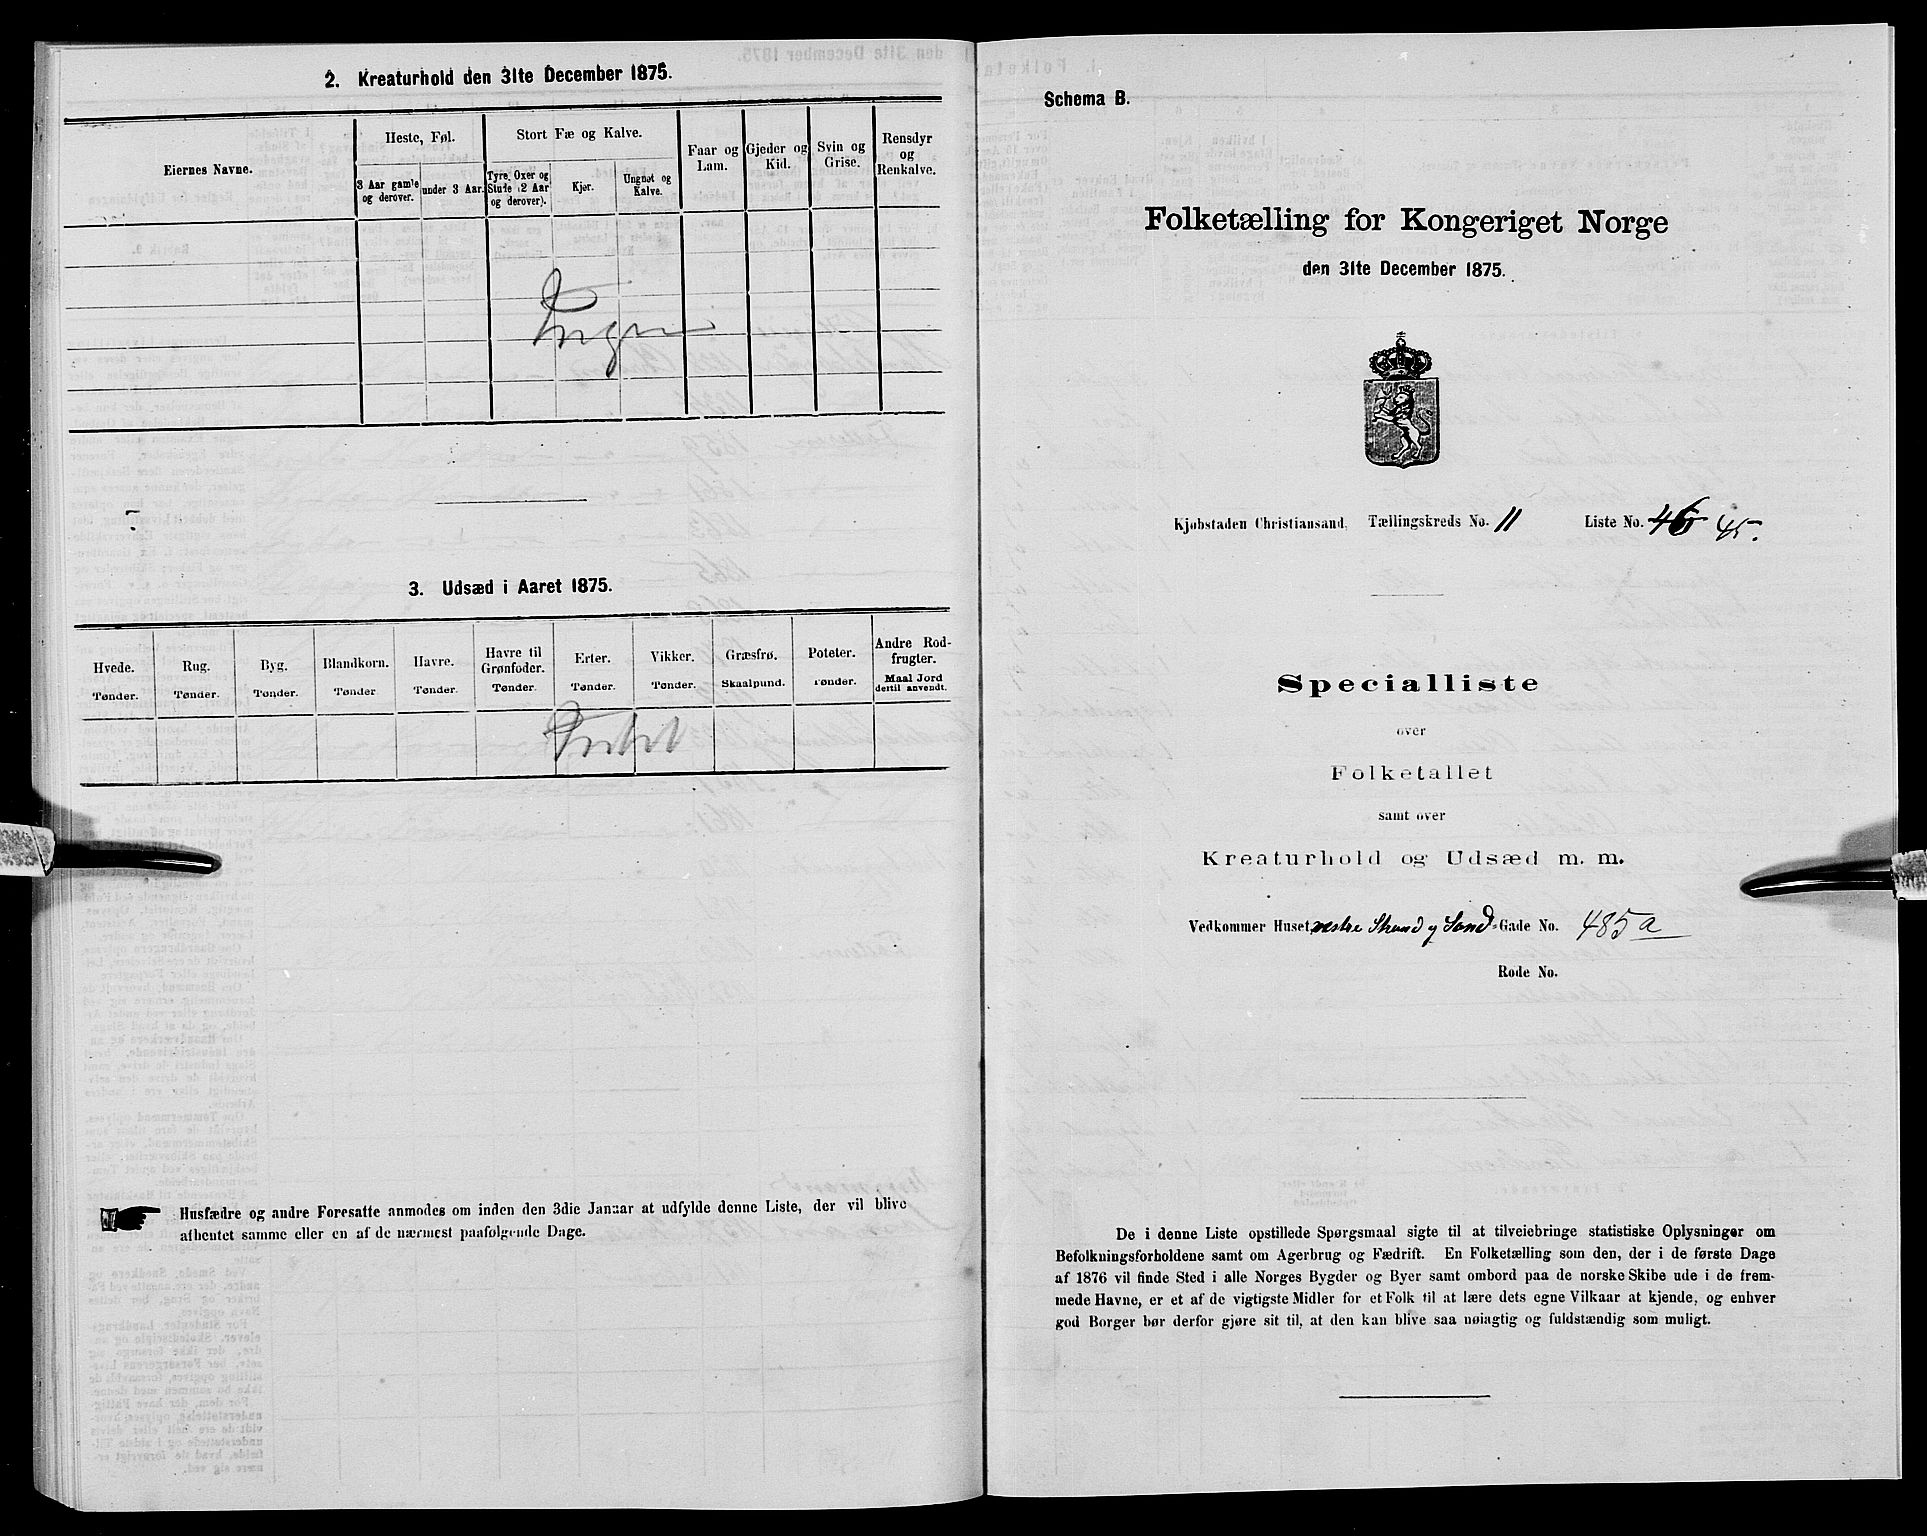 2. Kreaturhold den 31te December 1875.
Eiernes Navne.
Heste, Føl.
3 Aar gamle og derover.
under 3 Aar.
Stort Fæ og Kalve.
Tyre, Oxer og Stude (2 Aar og derover).
Kjør.
Ungnøt og Kalve.
Faar og Lam.
Gjeder og Kid.
Svin og Grise.
Rensdyr og Renkalve.
Ingen
3. Udsæd i Aaret 1875.
Hvede. Tønder.
Rug. Tønder.
Byg. Tønder.
Blandkorn. Tønder
Havre. Tønder.
Havre til Grønfoder. Tønder.
Erter. Tønder.
Vikker. Tønder.
Græsfrø. Skaalpund.
Poteter. Tønder.
Andre Rodfrugter. Maal Jord dertil anvendt.
Intet
Husfædre og andre Foresatte anmodes om inden den 3die Januar at udfylde denne Liste, der vil blive
afhentet samme eller en af de nærmest paafølgende Dage.
Schema B.
Folketælling for Kongeriget Norge
den 31te December 1875.
Kjøbstaden Christiansand, Tællingskreds No. 11 Liste No. 46 45.
Specialliste
over
Folketallet
samt over
Kreaturhold og Udsæd m. m.
Vedkommer Huset, vestre Strand og Sand-Gade No. 485a
Rode No.
De i denne Liste opstillede Spørgsmaal sigte til at tilveiebringe statistiske Oplysninger om
Befolkningsforholdene samt om Agerbrug og Fædrift. En Folketælling som den, der i de første Dage
af 1876 vil finde Sted i alle Norges Bygder og Byer samt ombord paa de norske Skibe ude i de frem-
mede Havne, er et af de vigtigste Midler for et Folk til at lære dets egne Vilkaar at kjende, og enhver
god Borger bør derfor gjøre sit til, at den kan blive saa nøiagtig og fuldstændig som muligt.